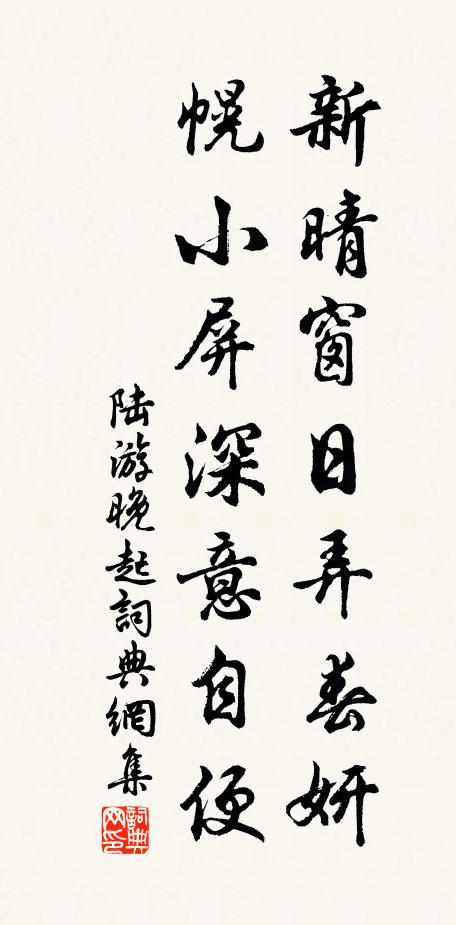 新晴窗日弄春妍
幌小屏深意自便
陆游晚起詞典網集
詞典网印